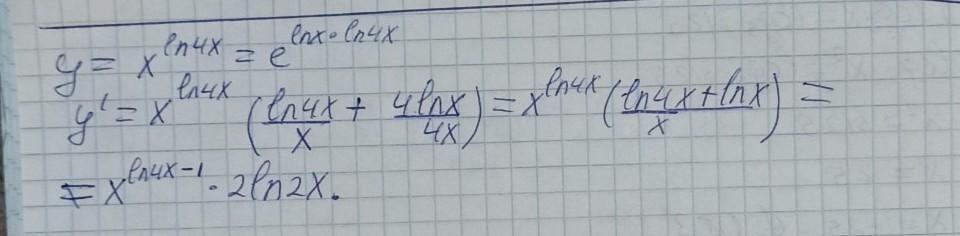 y = x^{ln4x} = e^{lnx·ln4x}
y' = x^{ln4x} (ln4x/x + 4lnx/4x) = x^{ln4x} (ln4x+lnx/x) =
= x^{ln4x-1} · 2ln2x.